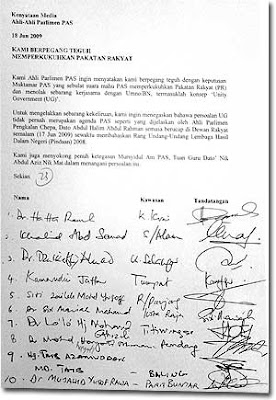 Kenyataan Media
Ahli-Ahli Parlimen PAS
18 Jun 2009
KAMI BERPEGANG TEGUH
MEMPERKUKUHKAN PAKATAN RAKYAT
Kami Ahli Parlimen PAS ingin menyatakan kami berpegang teguh dengan keputusan
Muktamar PAS yang sebulat suara mahu PAS memperkukuhkan Pakatan Rakyat (PR)
dan menolak sebarang kerjasama dengan Umno/BN, termasuklah konsep "Unity
Government (UG)".
Untuk mengelakkan sebarang kekeliruan, kami ingin menegaskan bahawa persoalan UG
tidak pernah merupakan agenda PAS seperti yang dijelaskan oleh Ahli Parlimen
Pengkalan Chepa, Dato Abdul Halim Abdul Rahman semasa berucap di Dewan Rakyat
semalam (17 Jun 2009) sewaktu membahaskan Rang Undang-Undang Lembaga Hasil
Dalam Negeri (Pindaan) 2008.
Kami juga menyokong penuh ketegasan Mursyidul Am PAS, Tuan Guru Dato' Nik
Abdul Aziz Nik Mat dalam menangani persoalan ini.
Sekian.
Nama Kawasan Tandatangan
1. Dr. Hatta Ramli K. Krai
2. Khalid Abd Samad S/Alam
3. Dr. Dzulkefly Ahmad K. Selangor
4. Kamarudin Jaffar Tumpat
5. Siti Zailah Mohd Yusoff R/Panjang
6. Dr Siti Mariah Mahmud Kota Raja
7. Dr Lo'lo' Hj Mohd Ghazali Titiwangsa
8. Dr Mohd Hayati Othman Pendang
9. Hj. Taib Azamudden
MD. TAIB - BALING
10 - Dr MUJAHID YUSOF RAWA - PARIT BUNTAR